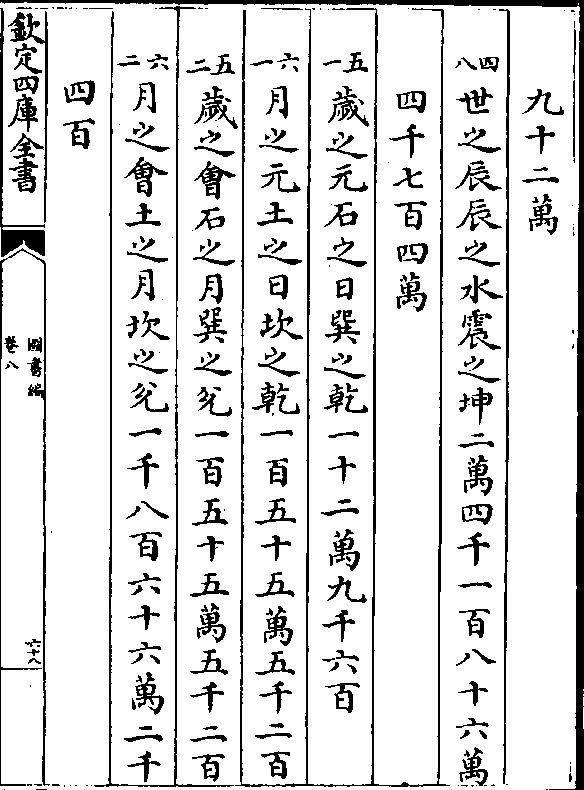 九十二萬
四八 世之辰辰之水震之坤二萬四千一百八十六萬
四千七百四萬
五一 歲之元石之日巽之乾一十二萬九千六百
六一 月之元土之日坎之乾一百五十五萬五千二百
五二 歲之會石之月巽之兊一百五十五萬五千二百
六二 月之會土之月坎之兊一千八百六十六萬二千
四百
欽定四庫全書
圖書編
卷八
六十八